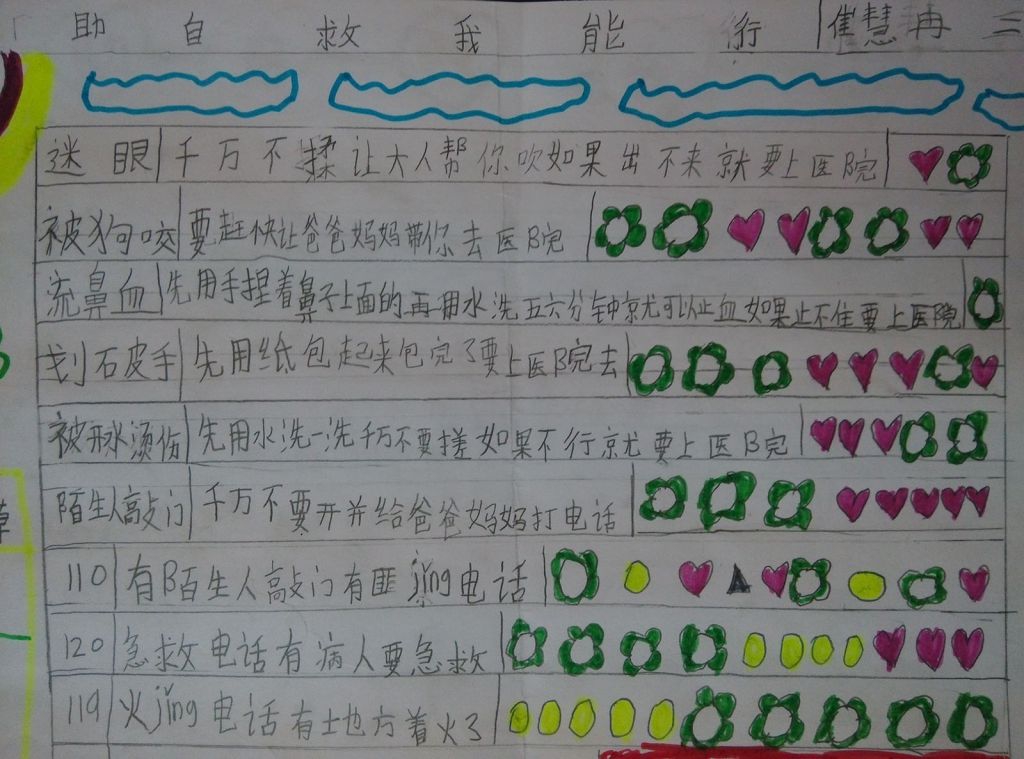 助自救我能行 崔慧冉 三
迷眼 千万不揉让大人帮你吹如果出不来就要上医院
被狗咬 要赶快让爸爸妈妈带你去医院
流鼻血 先用手捏着鼻子上面的再用水洗五六分钟就可以止血如果止不住要上医院
划石皮手 先用纸包起来包完了要上医院去
被开水烫伤 先用水洗一洗千万不要搓如果不行就要上医院
陌生人敲门 千万不要开并给爸爸妈妈打电话
110 有陌生人敲门有匪jǐng电话
120 急救电话有病人要急救
119 火jǐng电话有土地方着火了